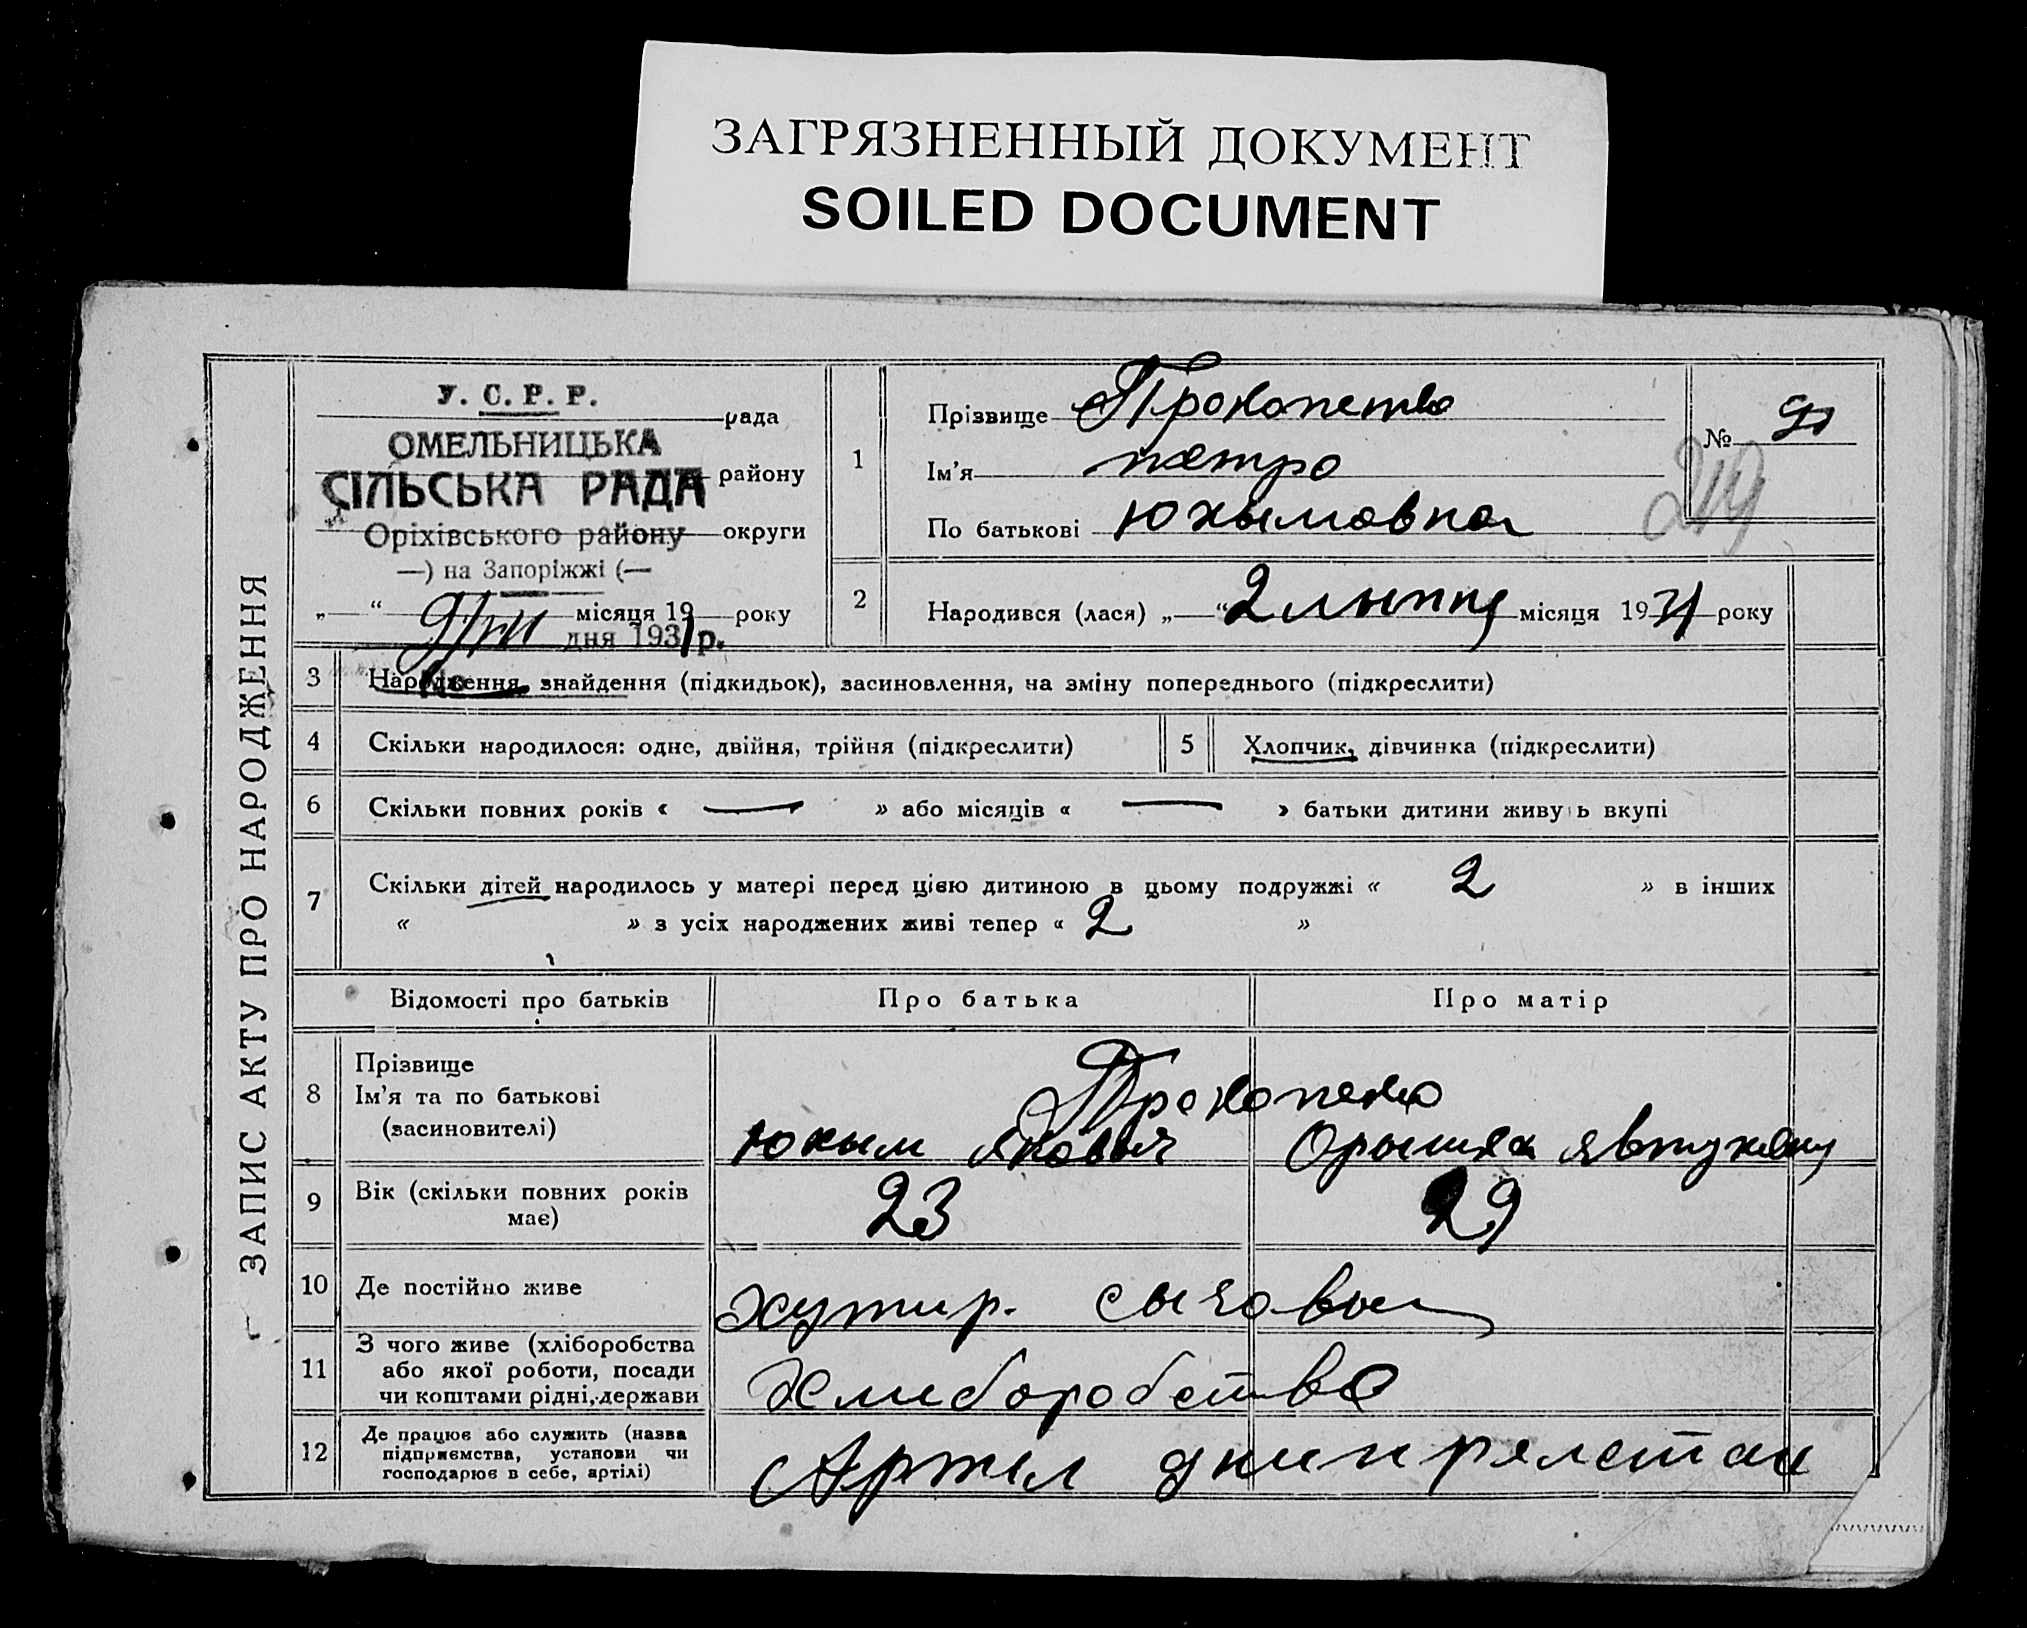 ЗАГРЯЗНЕННЫЙ ДОКУМЕНТ
SOILED DOCUMENT
ЗАПИС АКТУ ПРО НАРОДЖЕННЯ
У. С. Р. Р.
рада
ОМЕЛЬНИЦЬКА
СІЛЬСЬКА РАДА району
Оріхівського району округи
—) на Запоріжжі (—
„ “ місяця 19 року
9/VII дня 1931 р.
1
Прізвище Прокопенко
Ім'я петро
По батькові Юхымовна
№ 91
219
2 Народився (лася) „ “ 2 лыпня місяця 1931 року
3 Народження, знайдення (підкидьок), засиновлення, на зміну попереднього (підкреслити)
4 Скільки народилося: одне, двійня, трійня (підкреслити) 5 Хлопчик, дівчинка (підкреслити)
6 Скільки повних років « — » або місяців « — » батьки дитини живуь вкупі
7 Скільки дітей народилось у матері перед цією дитиною в цьому подружжі « 2 » в інших
« » з усіх народжених живі тепер « 2 »
Відомості про батьків Про батька Про матір
8 Прізвище
Ім'я та по батькові
(засиновителі)
Прокопенко
Юхым Яковыч Орышка Явтуховна
9 Вік (скільки повних років
має)
23 29
10 Де постійно живе хутир.
11 З чого живе (хліборобства
або якої роботи, посади
чи коштами рідні, держави
Хлиборобство
12 Де працює або служить (назва
підприємства, установи чи
господарює в себе, артілі)
Артил днипрялстан